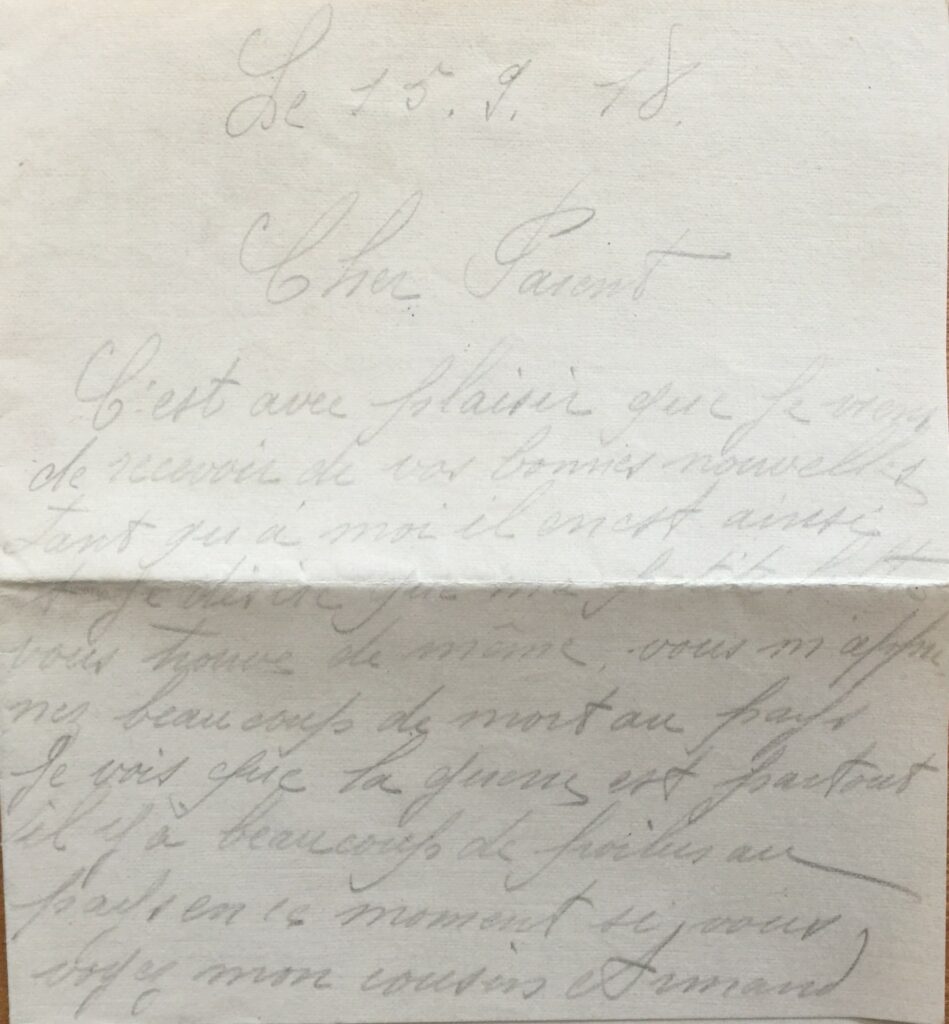 Le 15. 9. 18.
Cher Parent
C'est avec plaisir que je viens
de recevoir de vos bonnes nouvelles
tant qu'à moi il en est ainsi
et je désire que ma petite lettre
vous trouve de même, vous m'appre
nez beaucoup de mort au pays
Je vois que la guerre est partout
il y à beaucoup de poilus au
pays en ce moment si vous
voyez mon cousin Armand